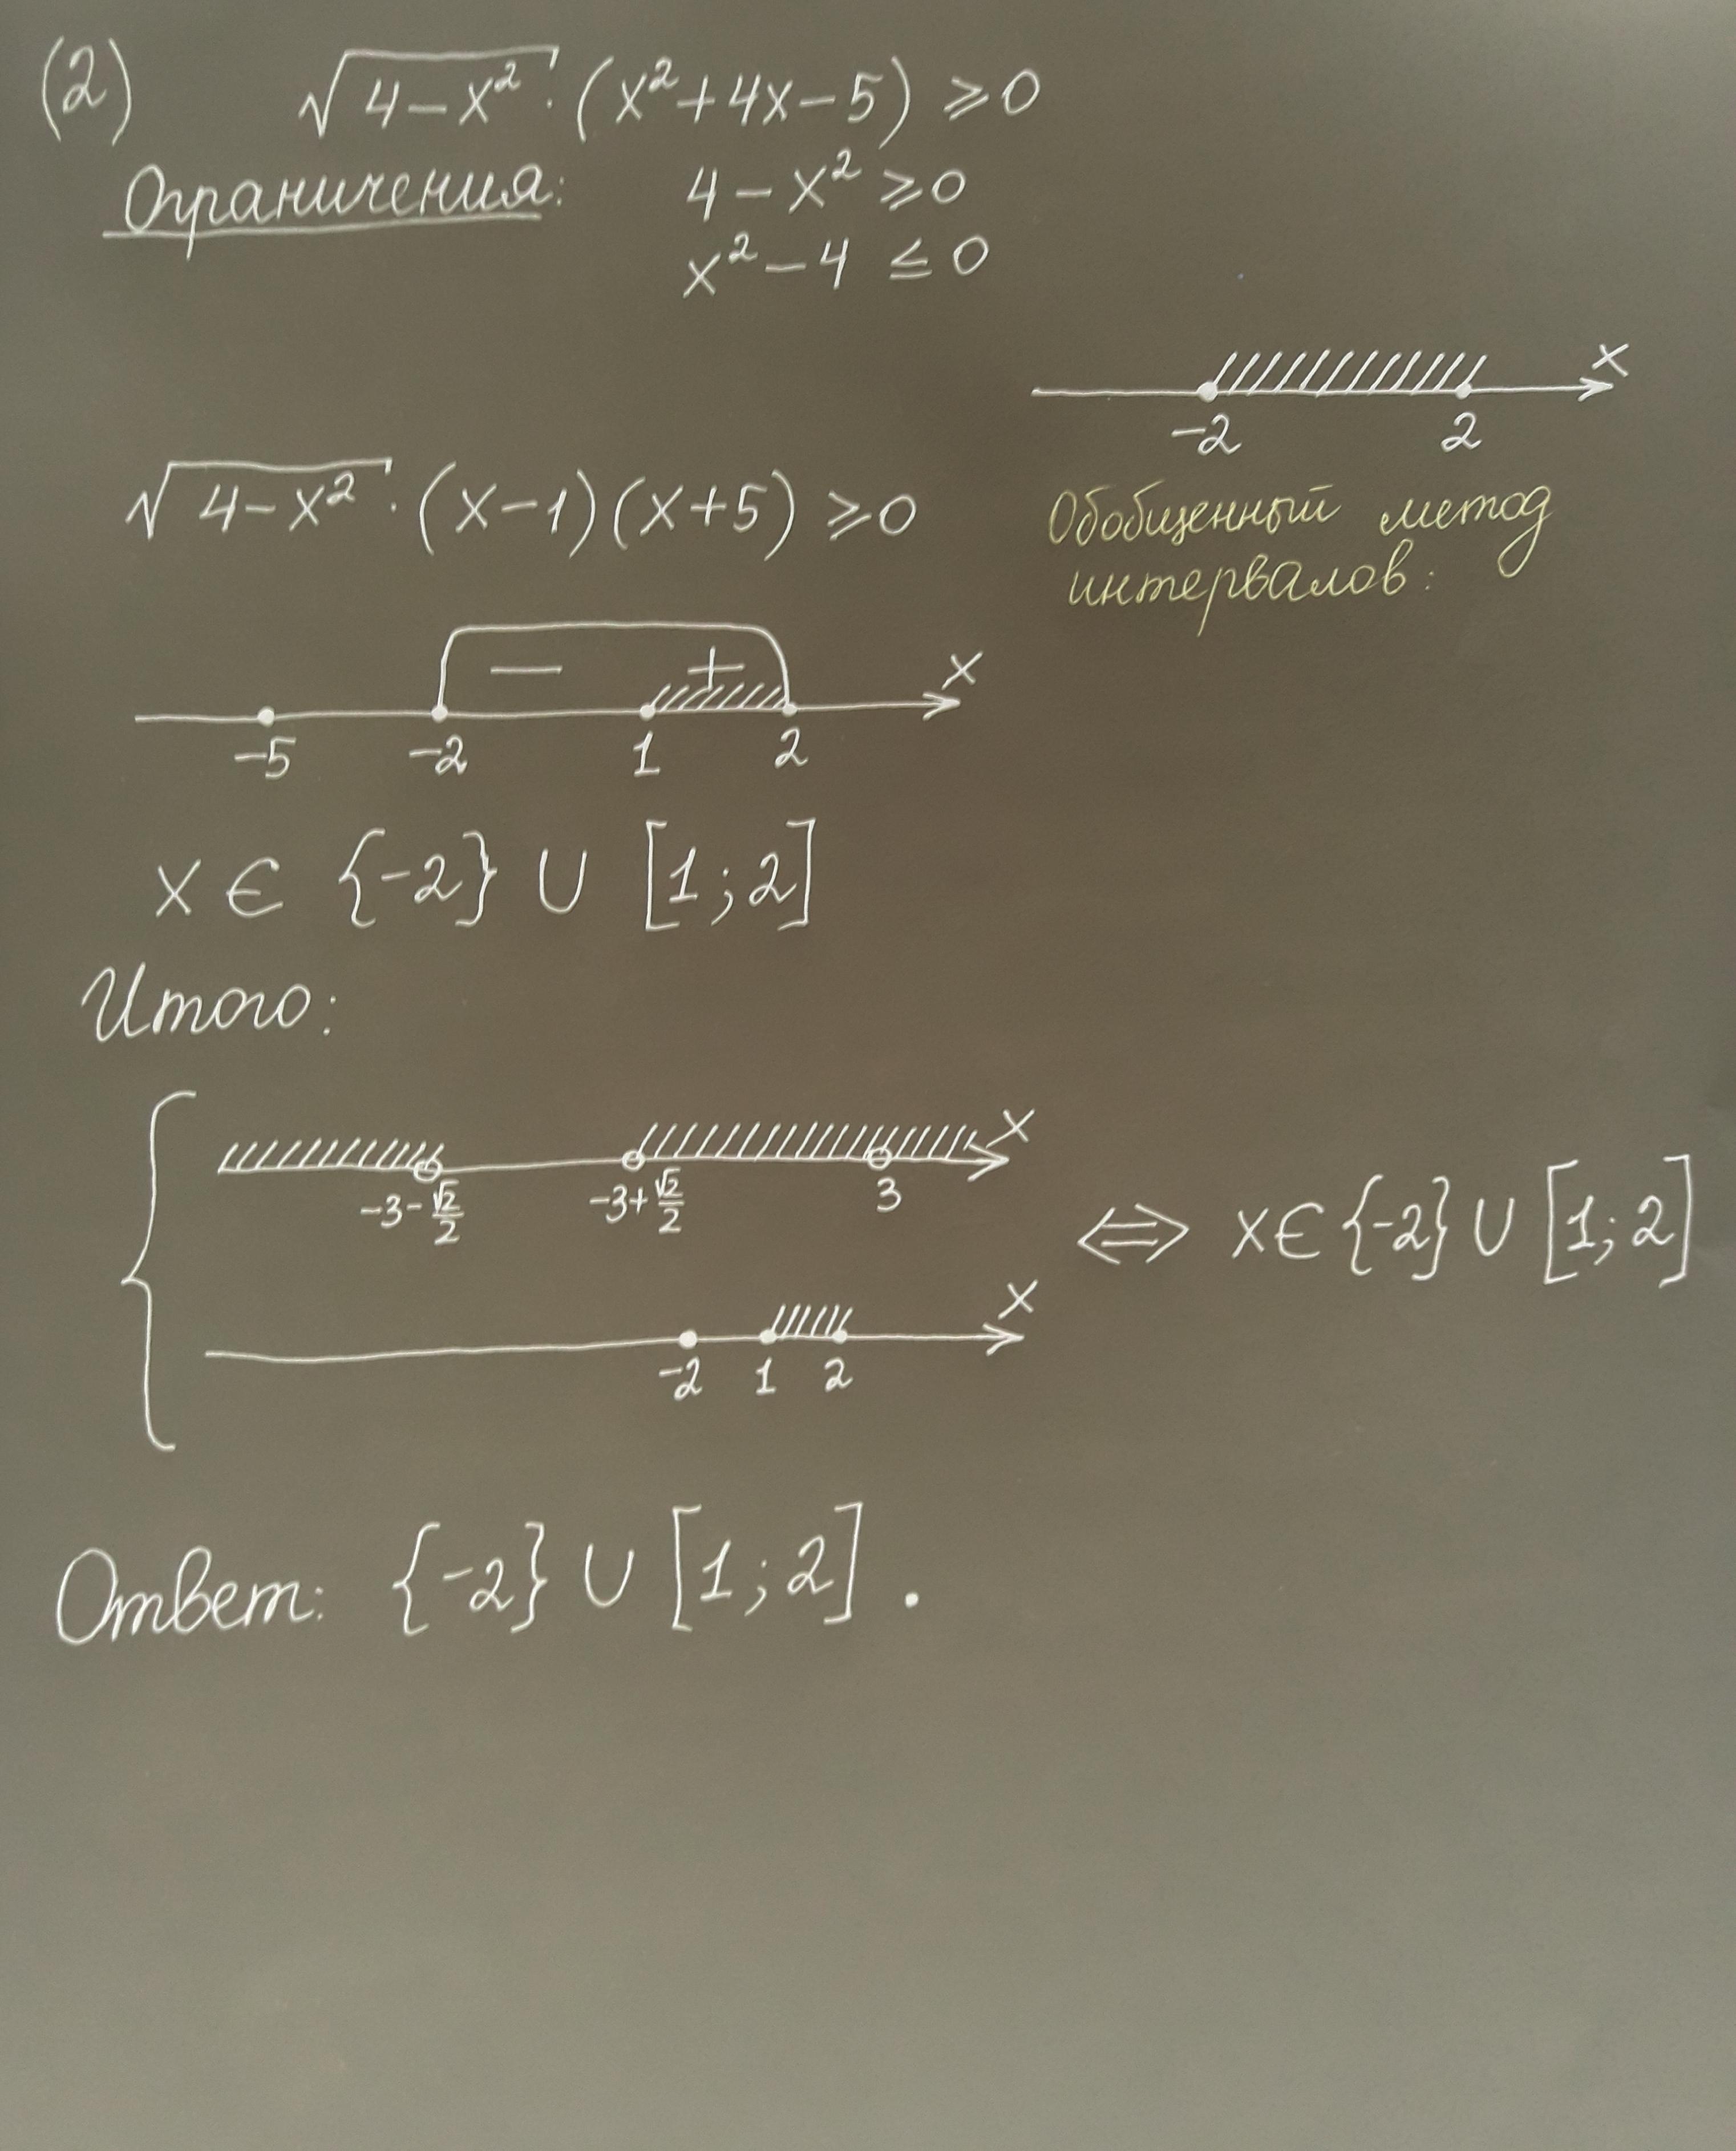 (2) √(4−x²) · (x²+4x−5) ≥ 0
Ограничения: 4−x² ≥ 0
x²−4 ≤ 0
x
−2 2
√(4−x²) · (x−1)(x+5) ≥ 0
Обобщенный метод
интервалов:
− + x
−5 −2 1 2
x ∈ {−2} ∪ [1; 2]
Итого:
x
−3−√2/2 −3+√2/2 3
⇔ x ∈ {−2} ∪ [1; 2]
x
−2 1 2
Ответ: {−2} ∪ [1; 2].